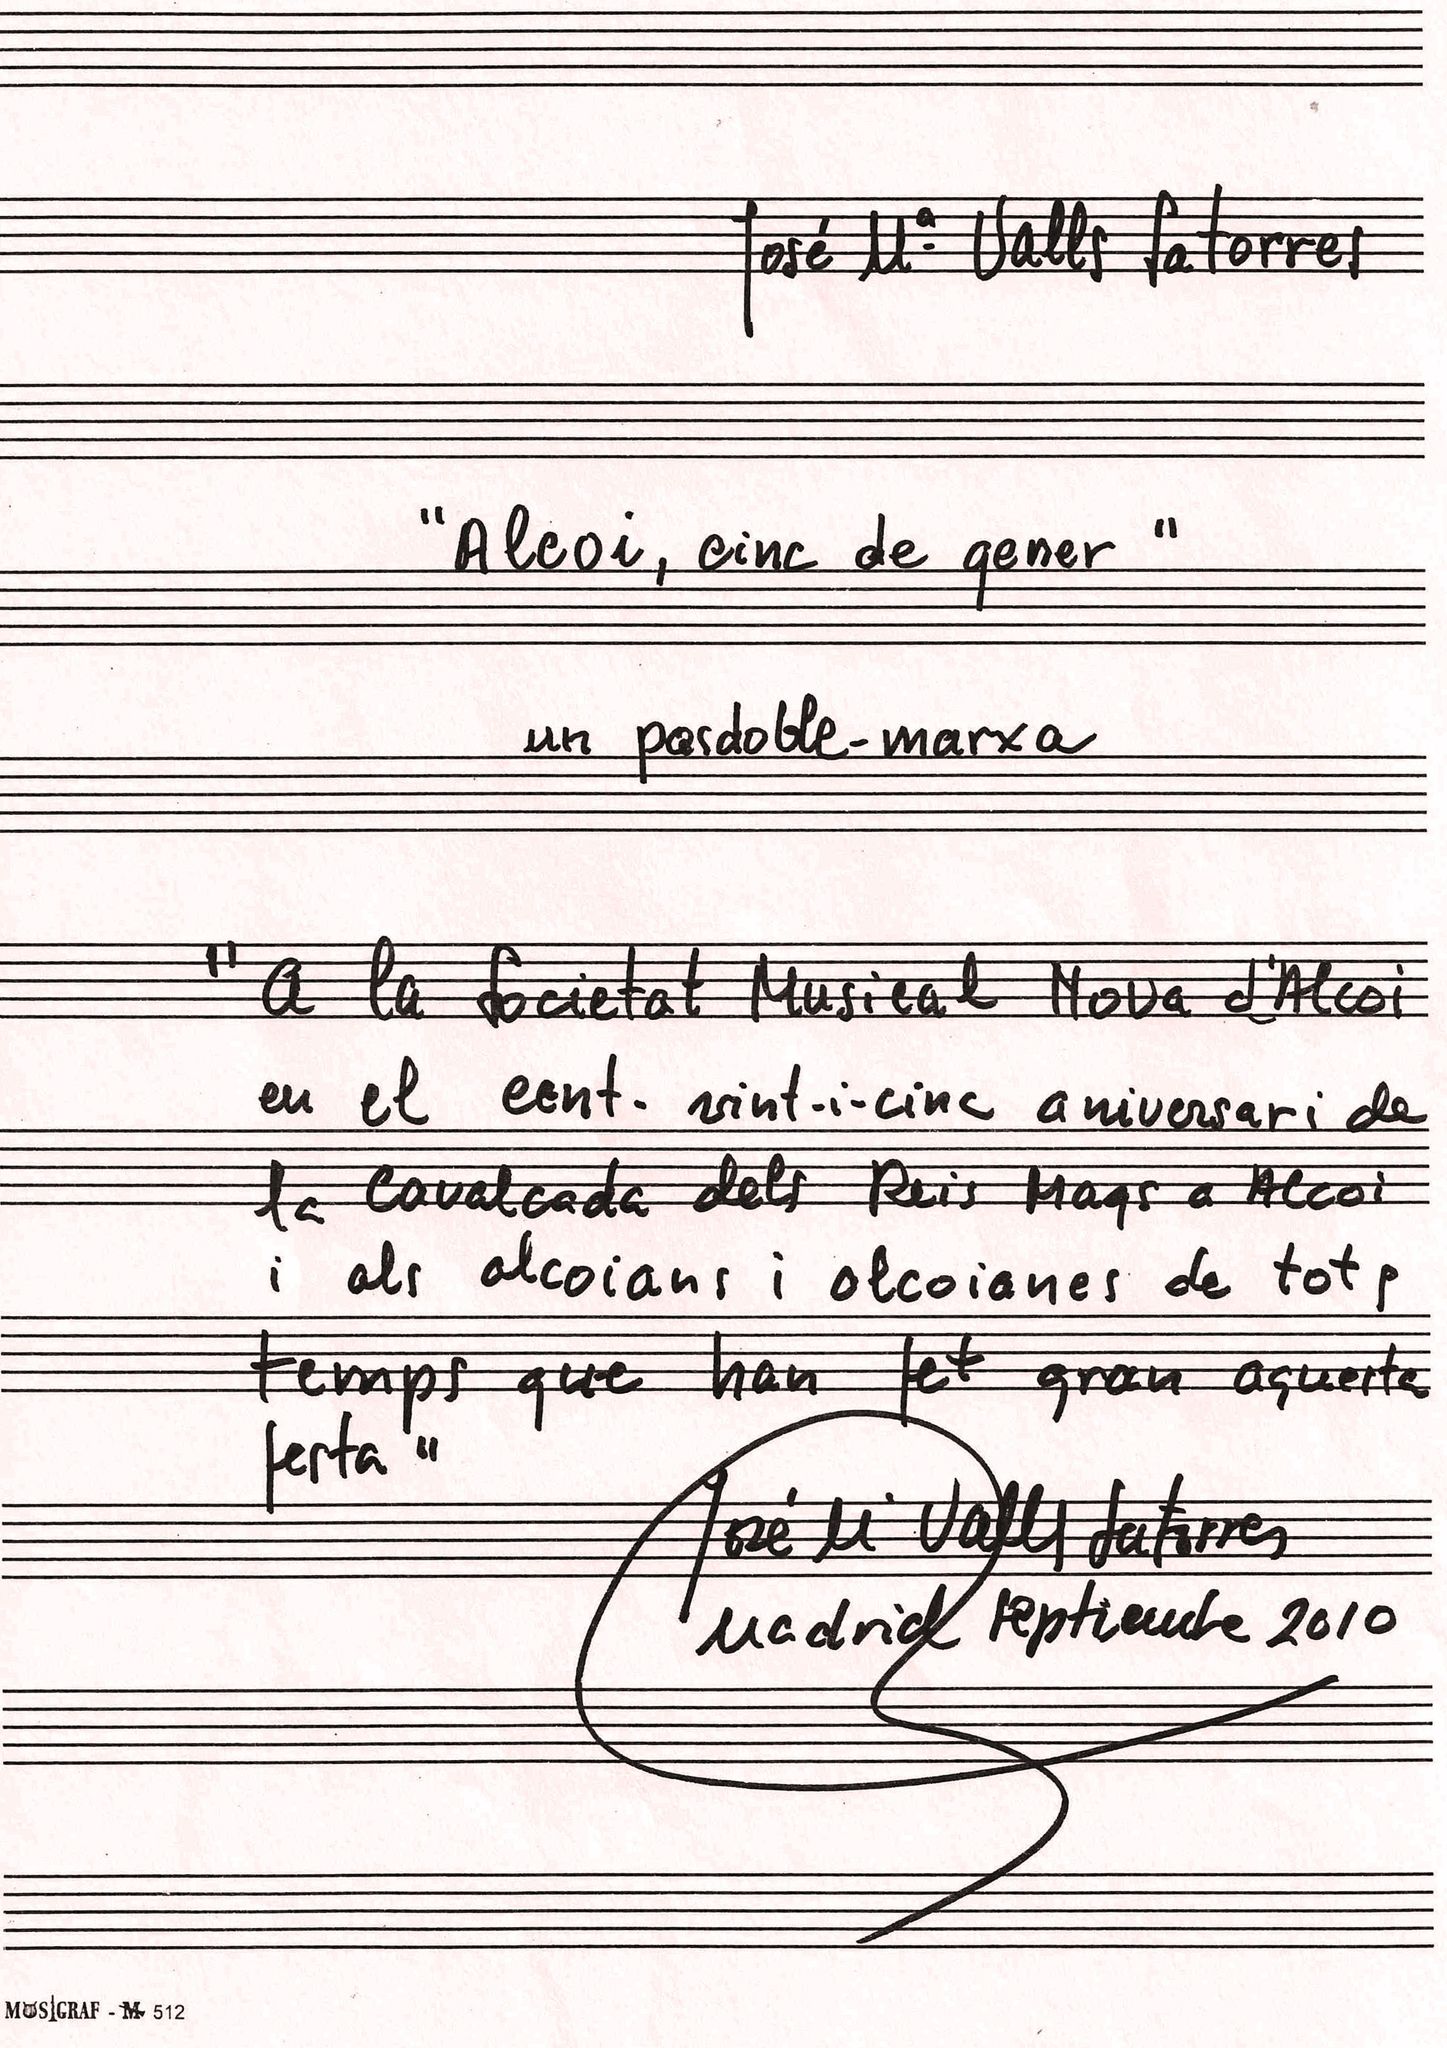 José Mª Valls Satorres
"Alcoi, cinc de gener"
un pasdoble-marxa
"A la Societat Musical Nova d'Alcoi
en el cent-vint-i-cinc aniversari de
la Cavalcada dels Reis Mags a Alcoi
i als alcoians i alcoianes de tots
temps que han fet gran aquesta
festa"
José Mª Valls Satorres
Madrid septiembre 2010
MUSIGRAF - M 512